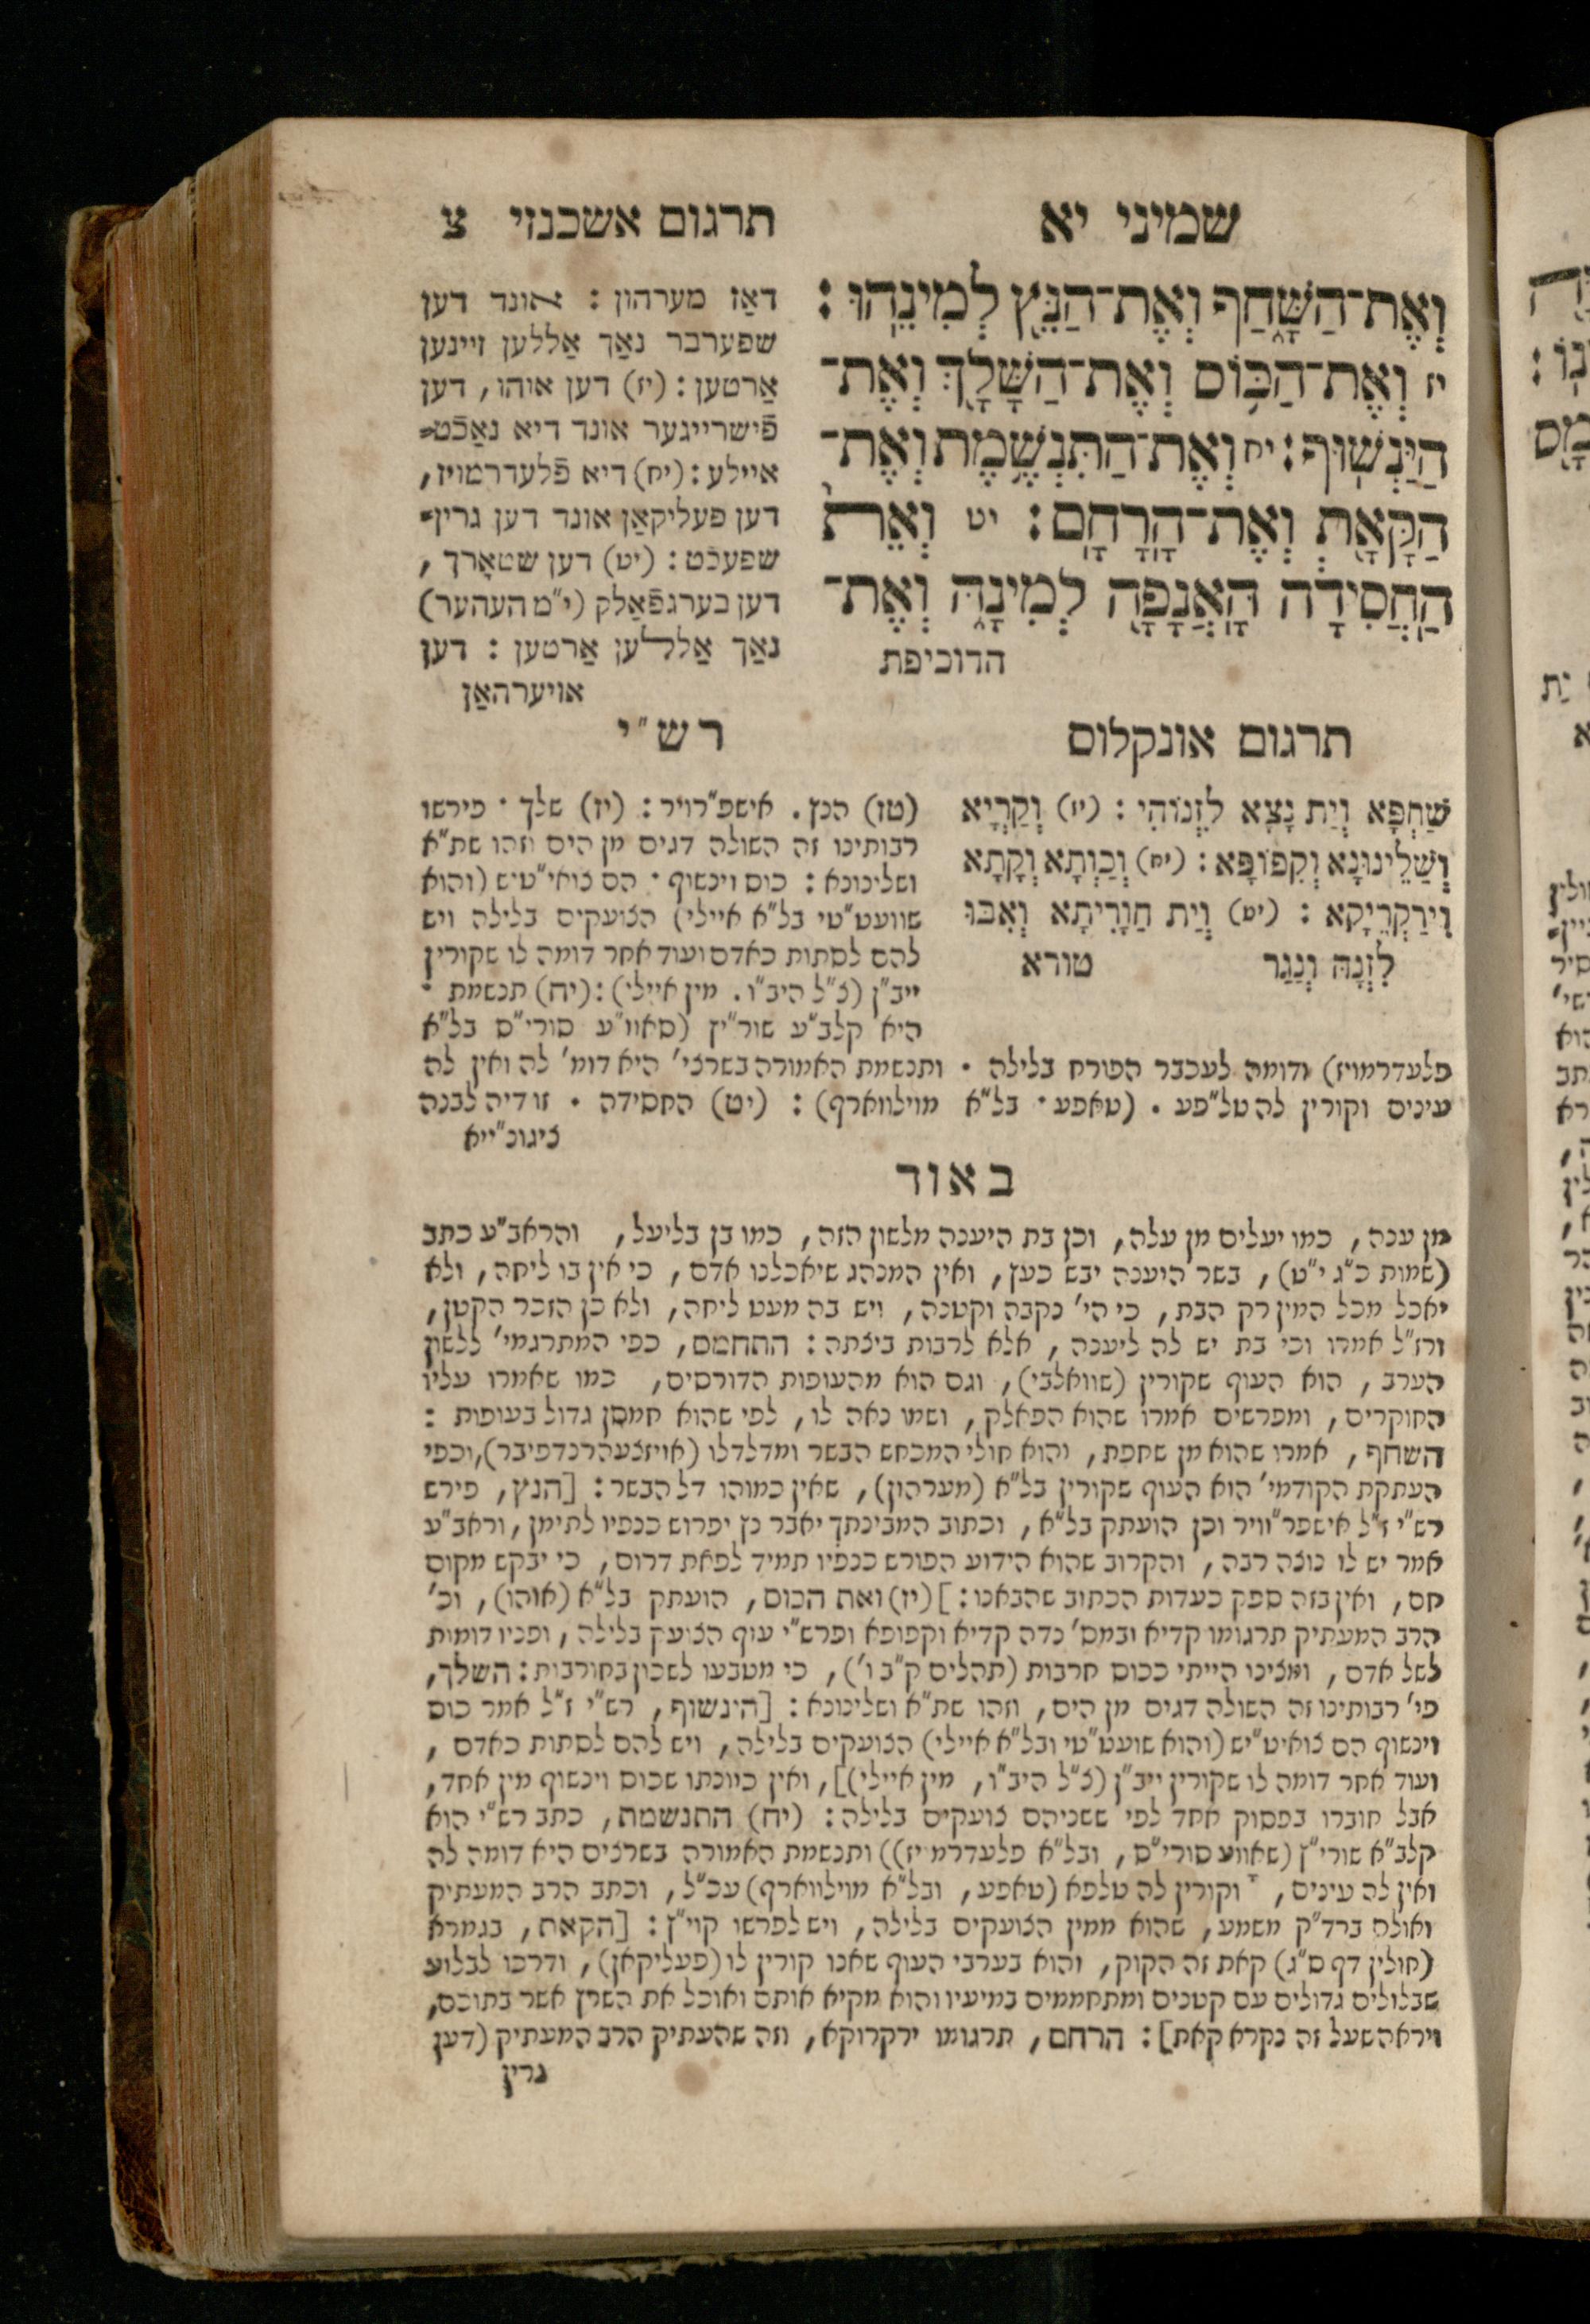 שמיני יא
תרגום אשכנזי צ
וְאֶת־הַשָּׁחַף וְאֶת־הַנֵּץ לְמִינֵהוּ:
יז וְאֶת־הַכּוֹס וְאֶת־הַשָּׁלָךְ וְאֶת־
הַיַּנְשׁוּף: יח וְאֶת־הַתִּנְשֶׁמֶת וְאֶת־
הַקָּאָת וְאֶת־הָרָחָם: יט וְאֵת
הַחֲסִידָה הָאֲנָפָה לְמִינָהּ וְאֶת־
הדוכיפת
דאַז מערהון: אונד דען
שפערבר נאַך אַללען זיינען
אַרטען: (יז) דען אוהו, דען
פֿישרייגער אונד דיא נאַכֿט-
איילע: (יח) דיא פֿלעדרמויז,
דען פעליקאַן אונד דען גרין-
שפעכֿט: (יט) דען שטאָרך,
דען בערגפֿאַלק (י"מ העהער)
נאַך אַללען אַרטען: דען
אויערהאַן
תרגום אונקלוס
שַׁחְפָּא וְיַת נָצָא לִזְנוֹהִי: (יז) וְקַרְיָא
וְשַׁלֵינוּנָא וְקִפוֹפָּא: (יח) וְכַוְתָא וְקָתָא
וִירַקְרֵיקָא: (יט) וְיַת חַוָרִיתָא וְאִבּוּ
לִזְנָהּ וְנַגַר טורא
רש"י
(טז) הנץ. אישפ"רויר: (יז) שלך. פירשו
רבותינו זה השולה דגים מן הים וזהו שת"א
ושלינונא: כוס וינשוף. הם צואי"טיש (והוא
שוועט"טי בל"א איילי) הצועקים בלילה ויש
להם לסתות כאדם ועוד אחר דומה לו שקורין
ייב"ן (צ"ל היב"ו. מין איילי): (יח) תנשמת.
היא קלב"ע שור"יץ (סאוו"ע סורי"ס בל"א
פלעדרמויז) ודומה לעכבר הפורח בלילה. ותנשמת האמורה בשרצי' היא דומ' לה ואין לה
עינים וקורין לה טל"פע. (טאפע. בל"א מוילווארף): (יט) החסידה. זו דיה לבנה
ציגונ"ייא
באור
מן ענה, כמו יעלים מן עלה, וכן בת היענה מלשון הזה, כמו בן בליעל, והראב"ע כתב
(שמות כ"ג י"ט), בשר היענה יבש כעץ, ואין המנהג שיאכלנו אדם, כי אין בו ליחה, ולא
יאכל מכל המין רק הבת, כי הי' נקבה וקטנה, ויש בה מעט ליחה, ולא כן הזכר הקטן,
ורז"ל אמרו וכי בת יש לה ליענה, אלא לרבות ביצתה: התחמס, כפי המתרגמי' ללשון
הערב, הוא העוף שקורין (שוואלבי), וגם הוא מהעופות הדורסים, כמו שאמרו עליו
החוקרים, ומפרשים אמרו שהוא הפאלק, ושמו נאה לו, לפי שהוא חמסן גדול בעופות:
השחף, אמרו שהוא מן שחפת, והוא חולי המכחש הבשר ומדלדלו (אויזצעהרנדפיבר), וכפי
העתקת הקודמי' הוא העוף שקורין בל"א (מערהון), שאין כמוהו דל הבשר: [הנץ, פירש
רש"י ז"ל אישפר"וויר וכן הועתק בל"א, וכתוב המבינתך יאבר נץ יפרוש כנפיו לתימן, וראב"ע
אמר יש לו נוצה רבה, והקרוב שהוא הידוע הפורש כנפיו תמיד לפאת דרום, כי יבקש מקום
חם, ואין בזה ספק כעדות הכתוב שהבאנו:] (יז) ואת הכוס, הועתק בל"א (אוהו), וכ'
הרב המעתיק תרגומו קדיא ובמס' נדה קדיא וקפופא ופרש"י עוף הצועק בלילה, ופניו דומות
לשל אדם, ומצינו הייתי ככוס חרבות (תהלים ק"ב ו'), כי מטבעו לשכון בחורבות: השלך,
פי' רבותינו זה השולה דגים מן הים, וזהו שת"א ושלינונא: [הינשוף, רש"י ז"ל אמר כוס
וינשוף הם צואיט"יש (והוא שועט"טי ובל"א איילי) הצועקים בלילה, ויש להם לסתות כאדם,
ועוד אחר דומה לו שקורין ייב"ן (צ"ל היב"ו, מין איילי)], ואין כוונתו שכוס וינשוף מין אחד,
אבל חוברו בפסוק אחד לפי ששניהם צועקים בלילה: (יח) התנשמת, כתב רש"י הוא
קלב"א שורי"ץ (שאווע סורי"ס, ובל"א פלעדרמ יז)) ותנשמת האמורה בשרצים היא דומה לה
ואין לה עינים, וקורין לה טלפא (טאפע, ובל"א מוילווארף) עכ"ל, וכתב הרב המעתיק
ואולם ברד"ק משמע, שהוא ממין הצועקים בלילה, ויש לפרשו קוי"ץ: [הקאת, בגמרא
(חולין דף ס"ג) קאת זה הקוק, והוא בערבי העוף שאנו קורין לו (פעליקאן), ודרכו לבלוע
שבלולים גדולים עם קטנים ומתחממים במיעיו והוא מקיא אותם ואוכל את השרץ אשר בתוכם,
ויראה שעל זה נקרא קאת]: הרחם, תרגומו ירקרוקא, וזה שהעתיק הרב המעתיק (דען
גרין